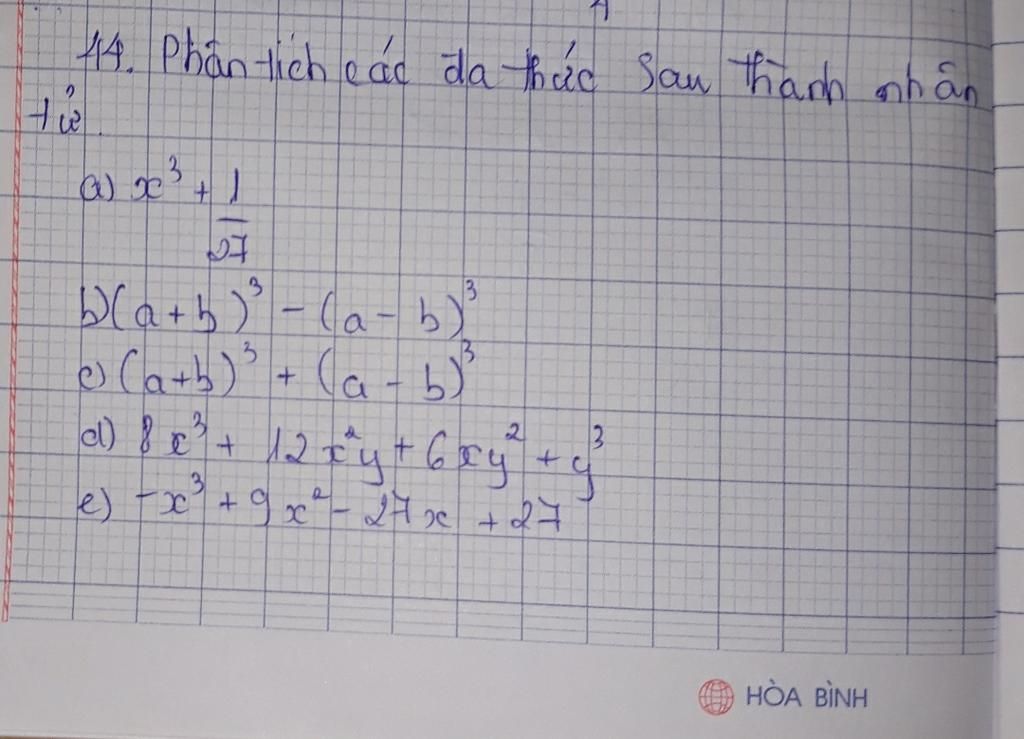 44. Phân tích các đa thức sau thành nhân
tử.
a) x³ + 1/27
b) (a + b)³ - (a - b)³
c) (a + b)³ + (a - b)³
d) 8x³ + 12x²y + 6xy² + y³
e) -x³ + 9x² - 27x + 27
HÒA BÌNH